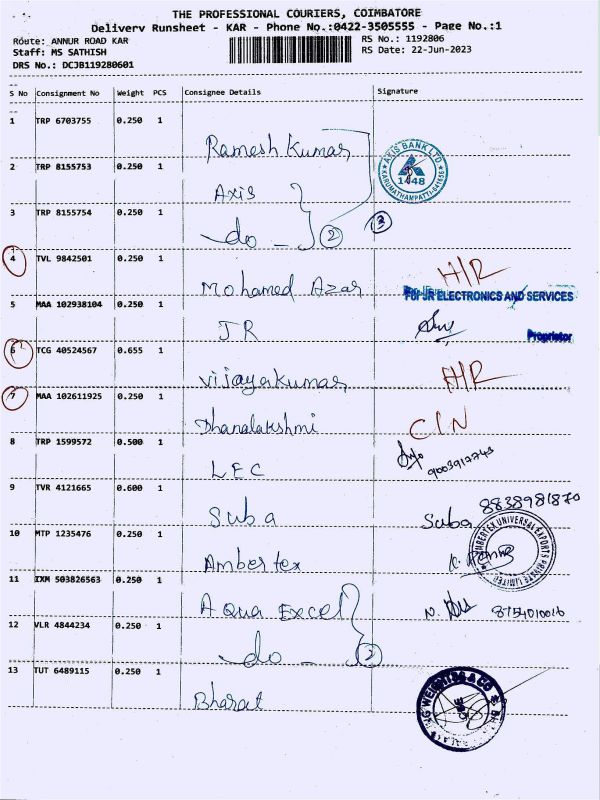 THE PROFESSIONAL COURIERS, COIMBATORE
Delivery Runsheet - KAR - Phone No.:0422-3505555 - Page No.:1
Route: ANNUR ROAD KAR
RS No.: 1192806
Staff: MS SATHISH
RS Date: 22-Jun-2023
DRS No.: DCJB119280601
S No Consignment No Weight PCS Consignee Details Signature
1 TRP 6703755 0.250 1
Ramesh Kumar
AXIS BANK LTD
1448
KARUMATHAMPATTI-641659
2 TRP 8155753 0.250 1
Axis
3 TRP 8155754 0.250 1
do - 2
3
4 TVL 9842501 0.250 1
Mohamed Azar
H/R
5 MAA 102938104 0.250 1
JR
For JR ELECTRONICS AND SERVICES
Proprietor
6 TCG 40524567 0.655 1
Vijayakumar
H/R
7 MAA 102611925 0.250 1
Dhanalakshmi
C/N
8 TRP 1599572 0.500 1
LEC
9003912743
9 TVR 4121665 0.600 1
Suba
Suba 8838981870
10 MTP 1235476 0.250 1
Ambertex
AMBERTEX UNIVERSAL EXPORTS PRIVATE LIMITED
11 IXM 503826563 0.250 1
Aqua Excel
8754010016
12 VLR 4844234 0.250 1
do - 2
13 TUT 6489115 0.250 1
Bharat